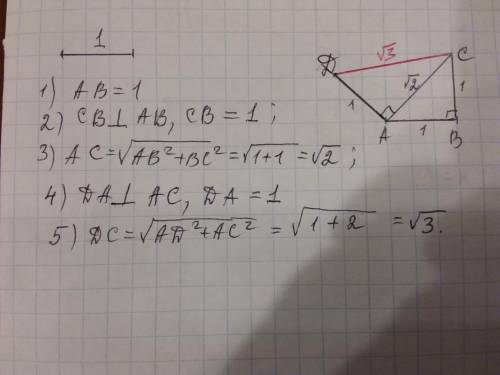 1
1) AB = 1
2) CB ⊥ AB, CB = 1;
3) AC = √AB²+BC² = √1+1 = √2;
4) DA ⊥ AC, DA = 1
5) DC = √AD²+AC² = √1+2 = √3.
D
√3
C
√2
1
1
A
1
B